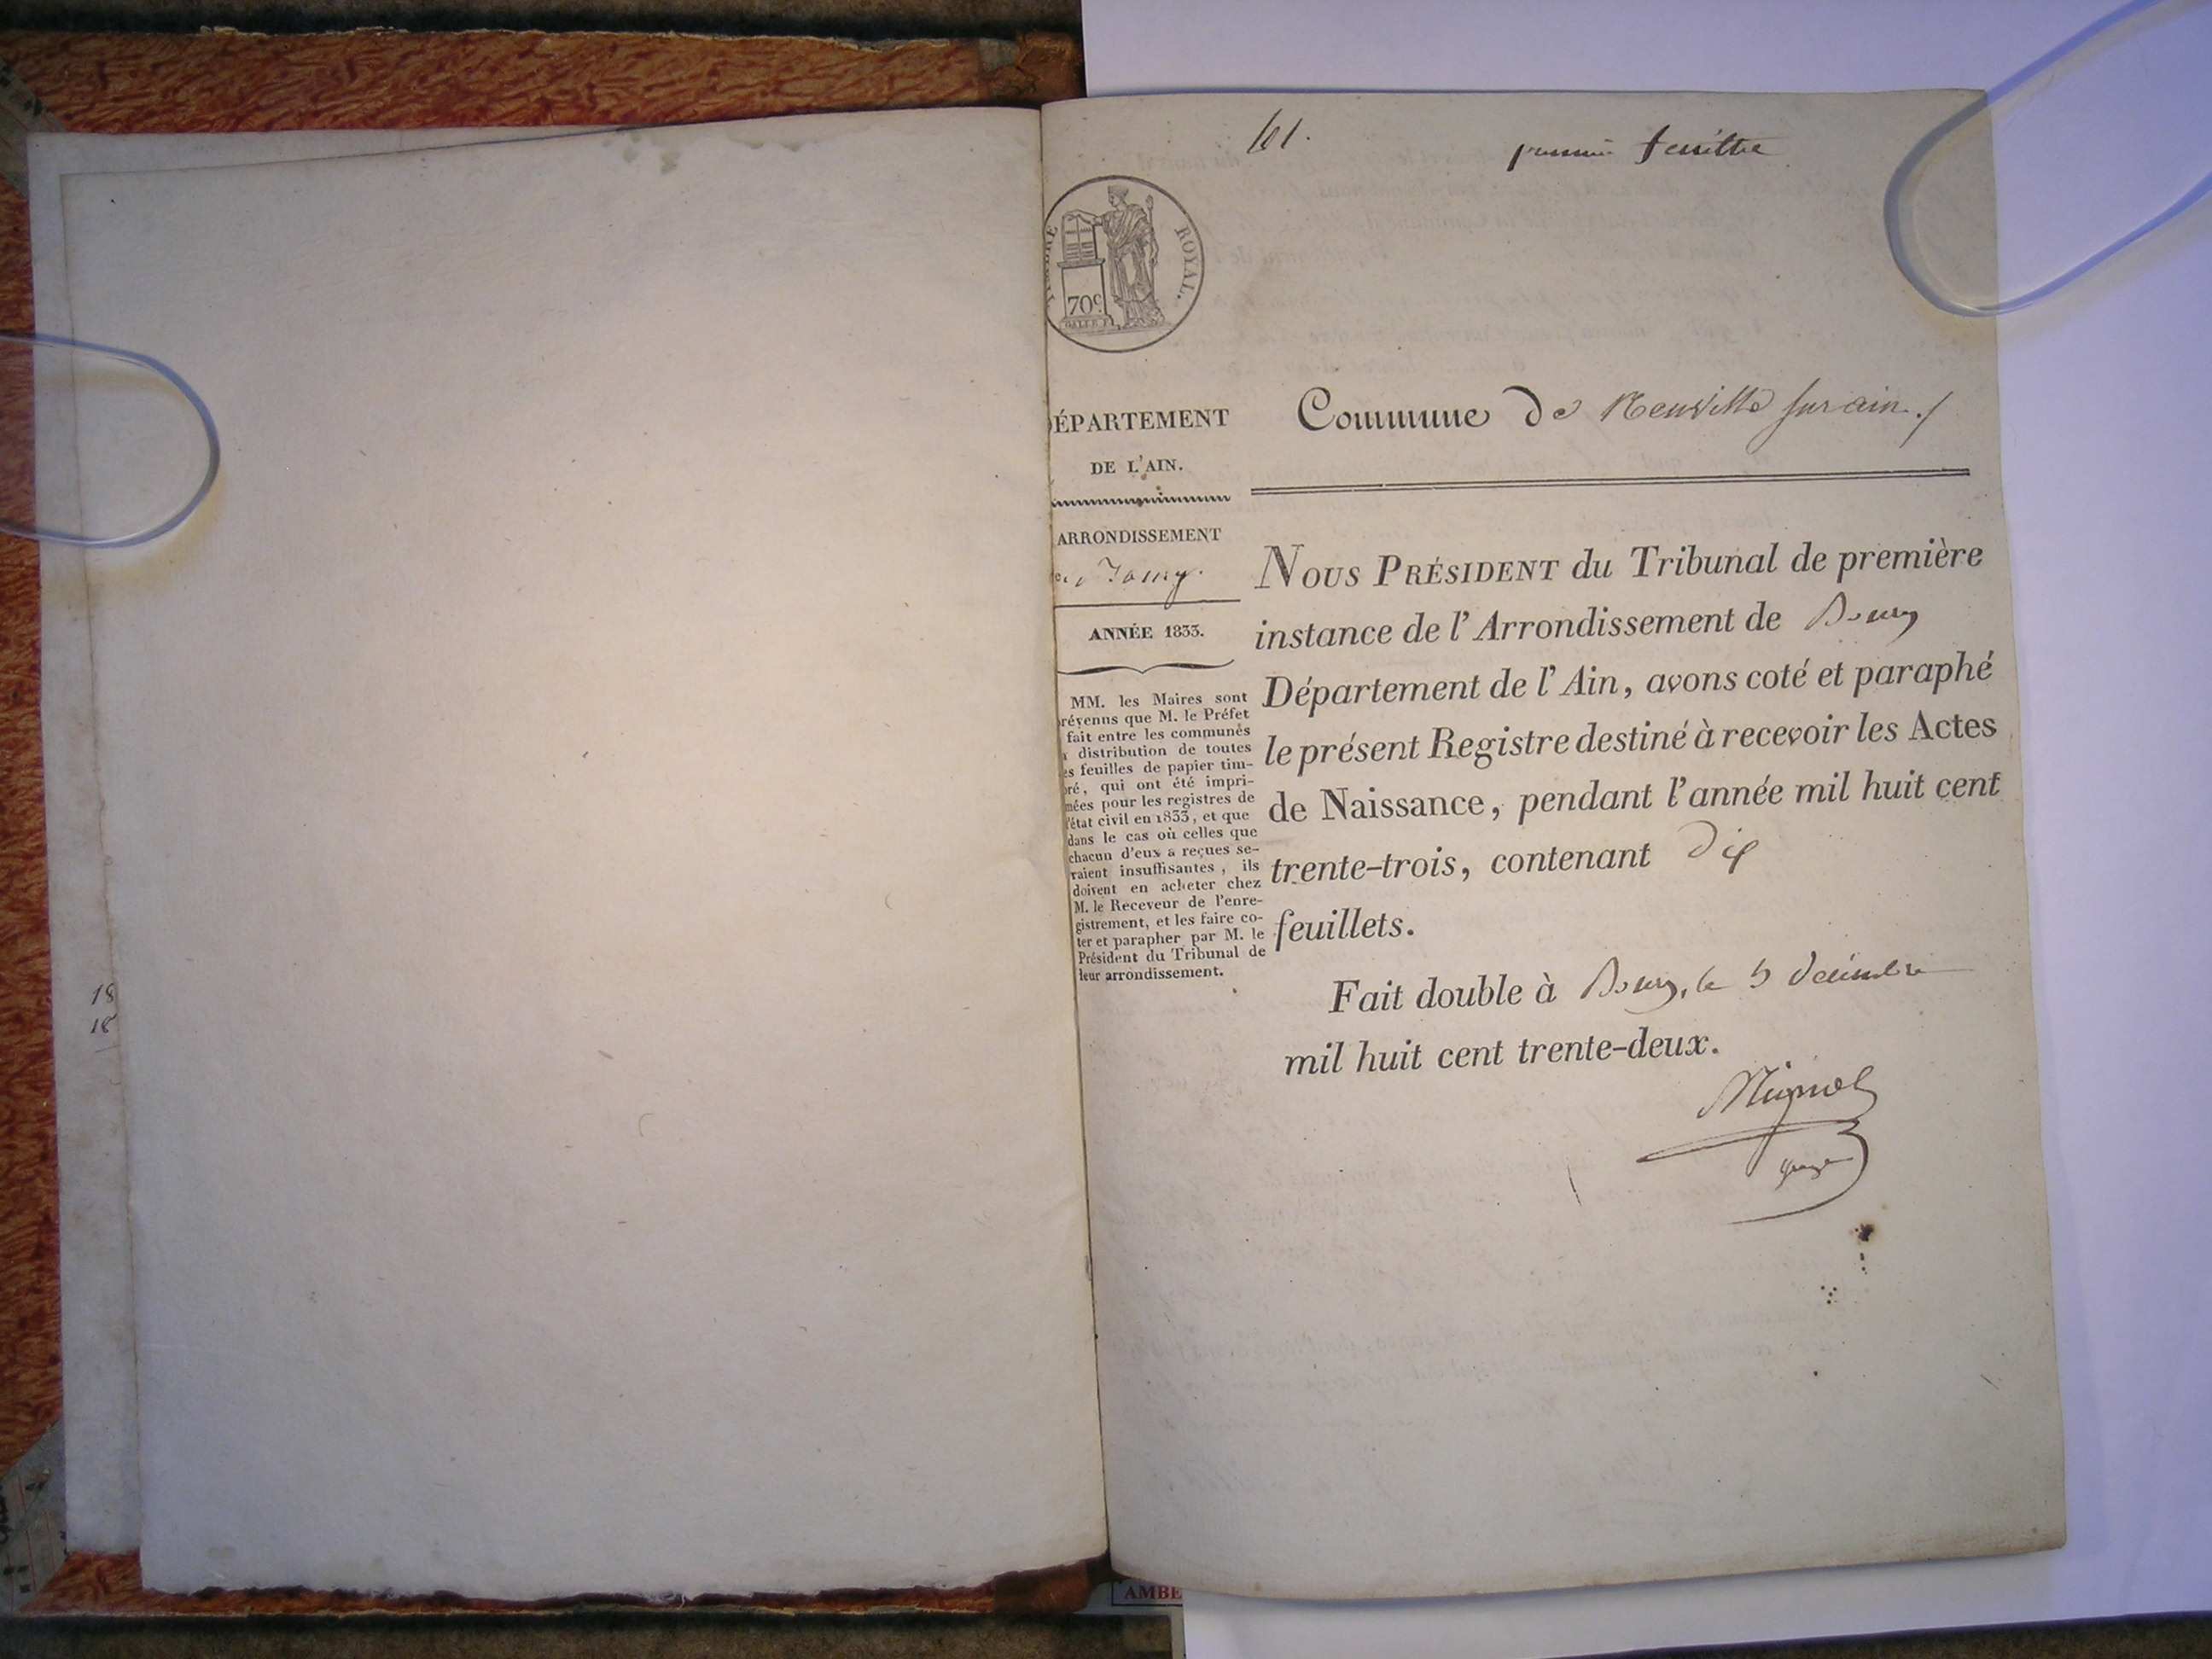 101.
premier feuillet
TIMBRE ROYAL.
70c
DÉPARTEMENT
DE L'AIN.
ARRONDISSEMENT
de Bourg.
ANNÉE 1833.
MM. les Maires sont
prévenus que M. le Préfet
fait entre les communes
la distribution de toutes
les feuilles de papier tim-
bré, qui ont été impri-
mées pour les registres de
l'état civil en 1833, et que
dans le cas où celles que
chacun d'eux a reçues se-
raient insuffisantes, ils
doivent en acheter chez
M. le Receveur de l'enre-
gistrement, et les faire co-
ter et parapher par M. le
Président du Tribunal de
leur arrondissement.
Commune de Neuville sur ain.
NOUS PRÉSIDENT du Tribunal de première
instance de l'Arrondissement de Bourg
Département de l'Ain, avons coté et paraphé
le présent Registre destiné à recevoir les Actes
de Naissance, pendant l'année mil huit cent
trente-trois, contenant dix
feuillets.
Fait double à Bourg, le 5 décembre
mil huit cent trente-deux.
18
18
AMBE